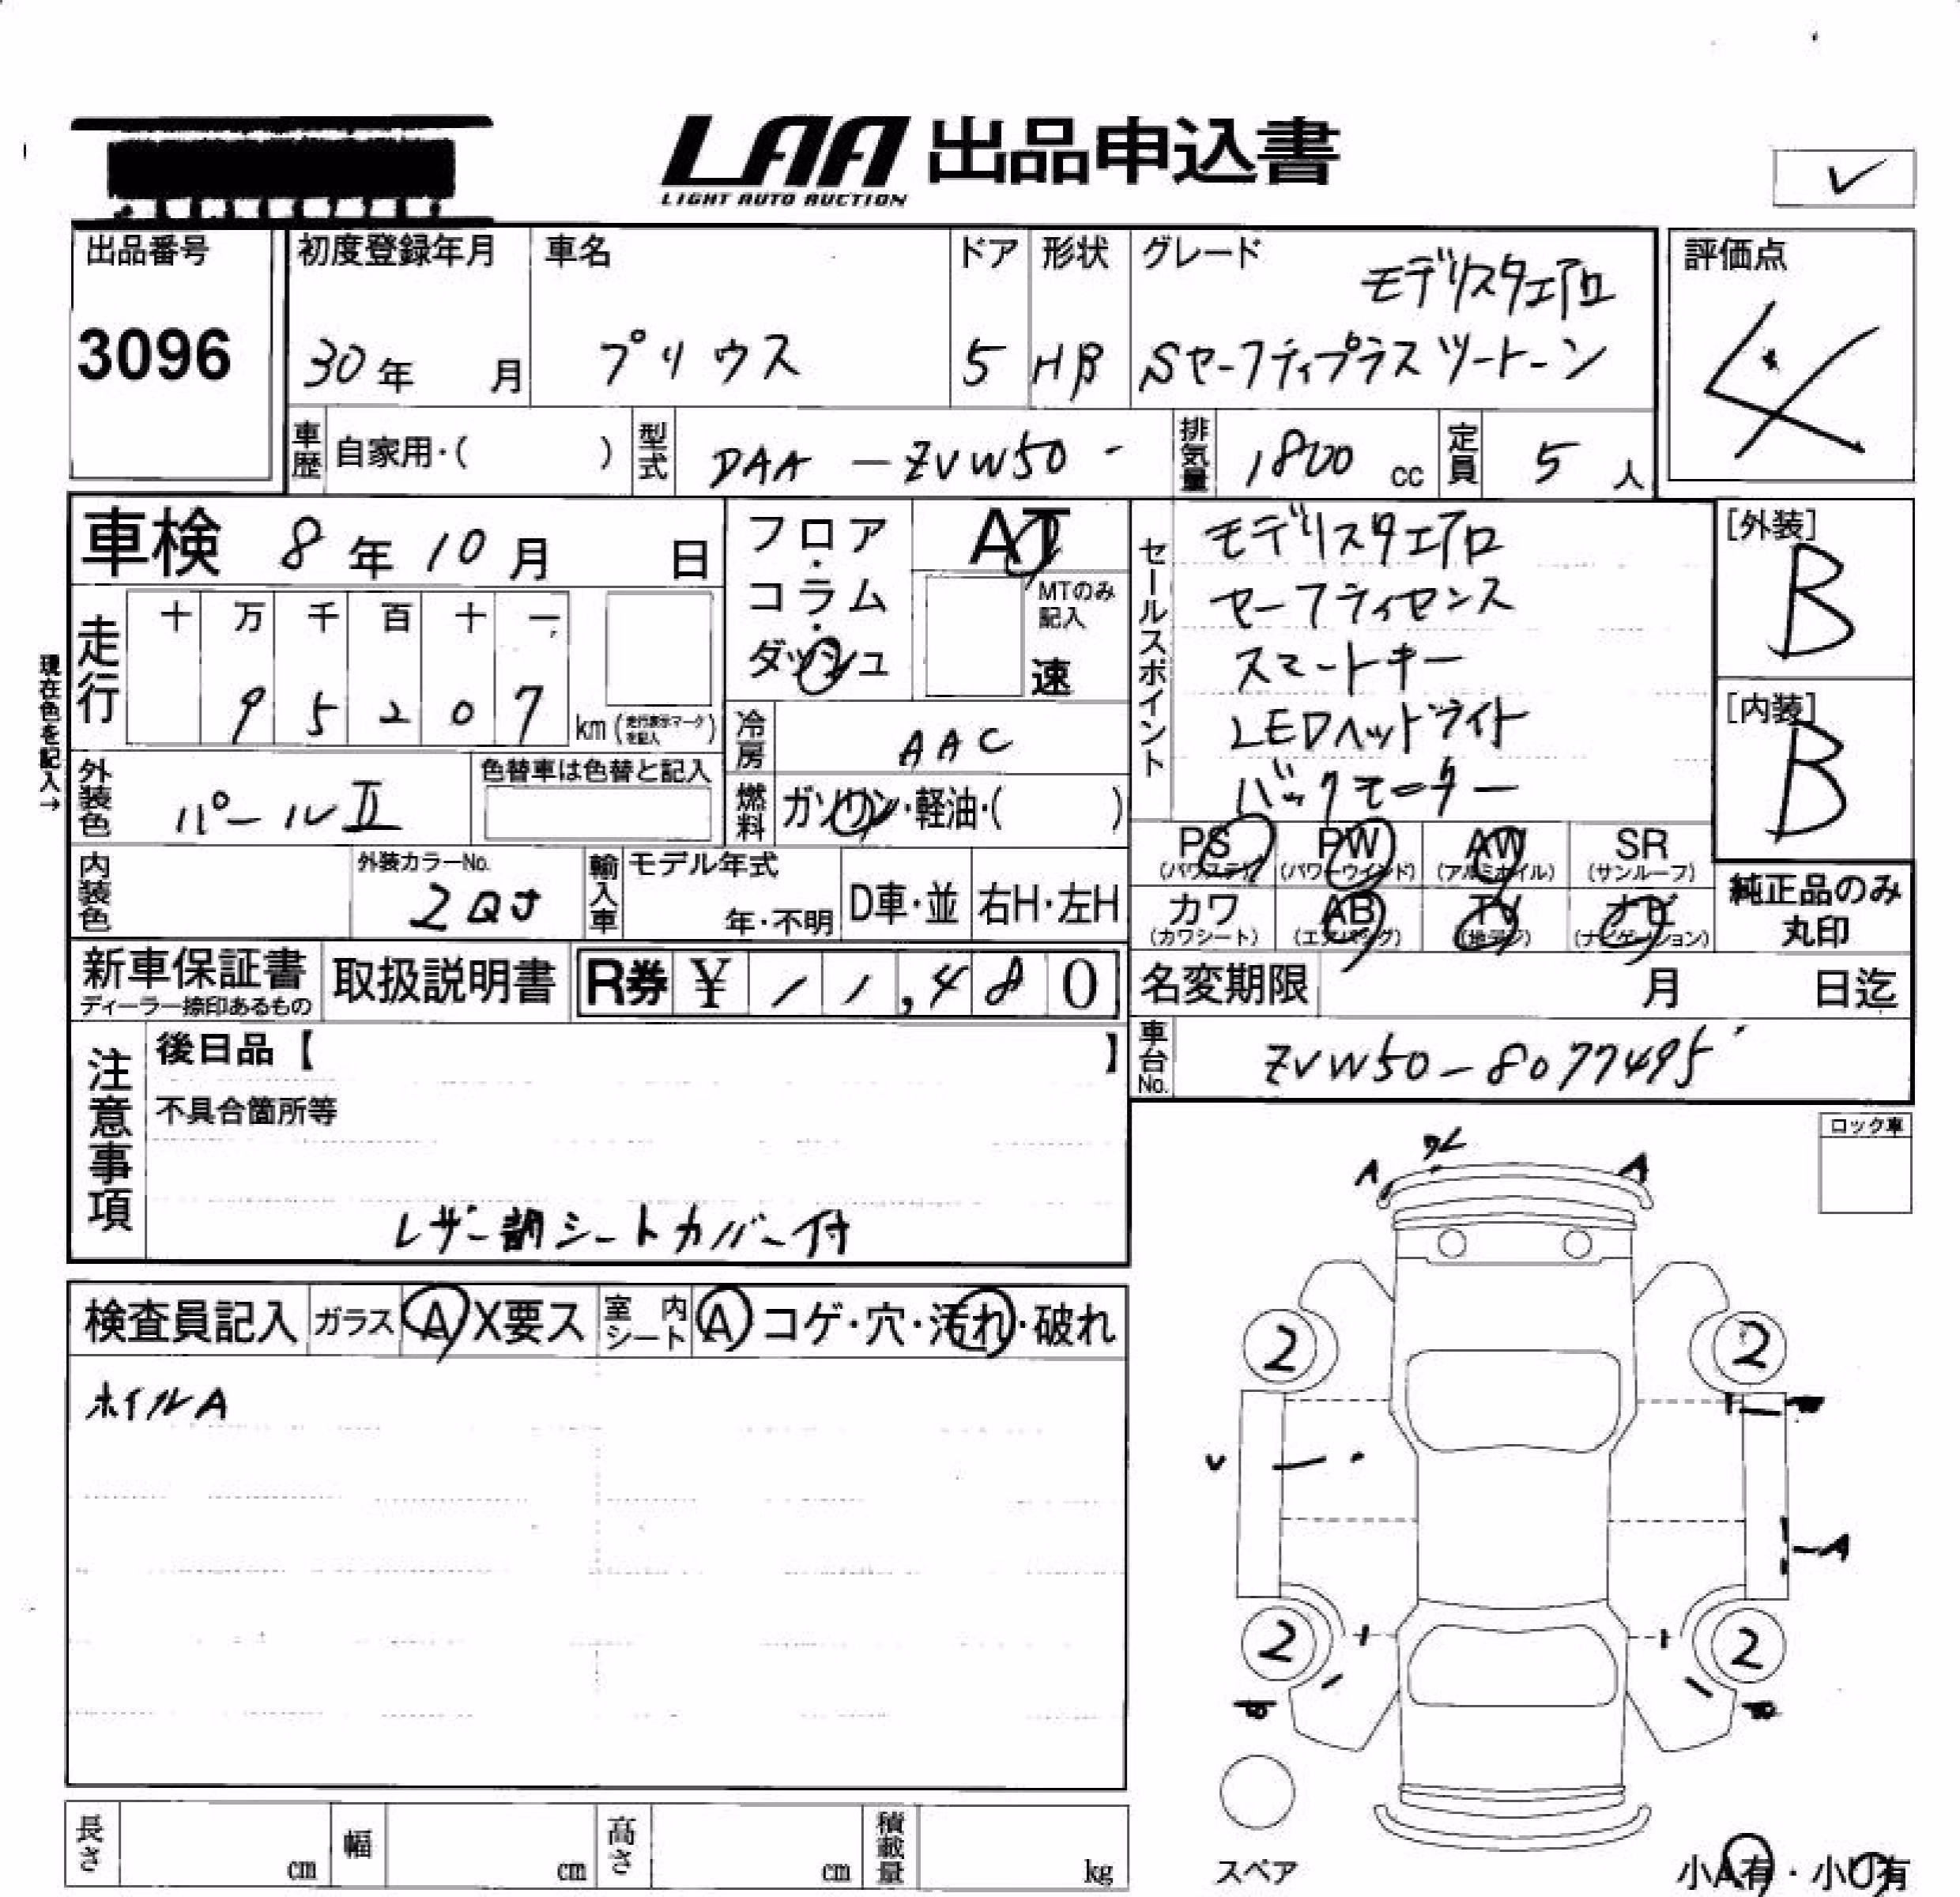 LAA 出品申込書
LIGHT AUTO AUCTION
出品番号
3096
初度登録年月
30年 月
車名
プリウス
ドア
5
形状
HB
グレード
モデリスタエアロ
Sセーフティプラス ツートーン
評価点
4
車歴 自家用・( )
型式 DAA-ZVW50-
排気量 1800 cc
定員 5 人
車検 8年 10月 日
フロア・コラム・ダッシュ
AT
MTのみ記入
速
セールスポイント
モデリスタエアロ
セーフティセンス
スマートキー
LEDヘッドライト
バックモニター
[外装]
B
[内装]
B
現在色を記入→
走行
十 万 千 百 十 一
9 5 2 0 7 km (走行表示マークを記入)
冷房 AAC
外装色 パールⅡ
色替車は色替と記入
燃料 ガソリン・軽油・( )
PS (パワステ)
PW (パワーウインド)
AW (アルミホイル)
SR (サンルーフ)
カワ (カワシート)
AB (エアバッグ)
TV (地デジ)
ナビ (ナビゲーション)
純正品のみ丸印
内装色
外装カラーNo.
2QJ
輸入車
モデル年式
年・不明
D車・並
右H・左H
新車保証書
ディーラー捺印あるもの
取扱説明書
R券 ¥ 11,480
名変期限 月 日迄
車台No. ZVW50-8077495
注意事項
後日品【 】
不具合箇所等
レザー調シートカバー付
ロック車
検査員記入
ガラス A X要ス
室内シート A コゲ・穴・汚れ・破れ
ホイルA
A
A
2
2
v
A
2
2
スペア
長さ cm
幅 cm
高さ cm
積載量 kg
小A有・小U有